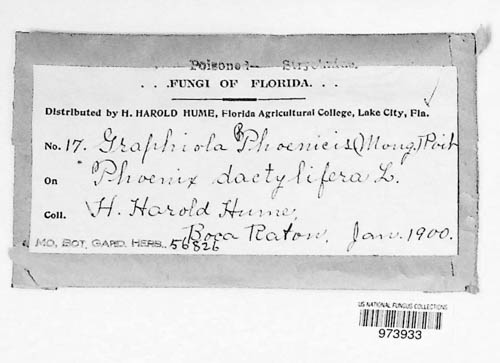 Poisoned— Strychnine.
. . .FUNGI OF FLORIDA. . .
Distributed by H. HAROLD HUME, Florida Agricultural College, Lake City, Fla.
No. 17. Graphiola Phoenicis (Moug.) Poit
On Phoenix dactylifera L.
Coll. H. Harold Hume,
Boca Raton, Jan. 1900.
MO. BOT. GARD. HERB. 56826
US NATIONAL FUNGUS COLLECTIONS
973933